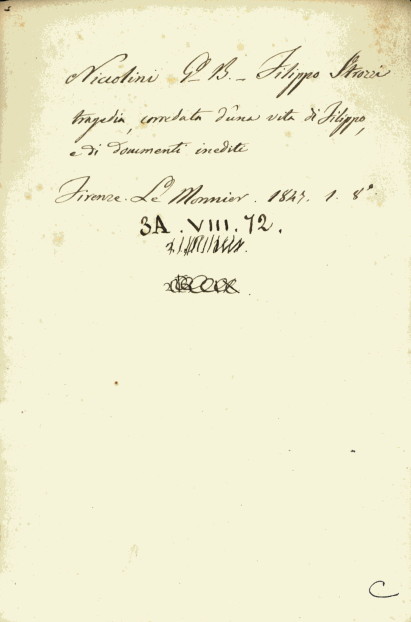 Niccolini G. B. - Filippo Strozzi
tragedia, corredata d'una vita di Filippo,
e di documenti inediti
Firenze. Le Monnier. 1847. 1. 8°
3A. VIII. 72.
C